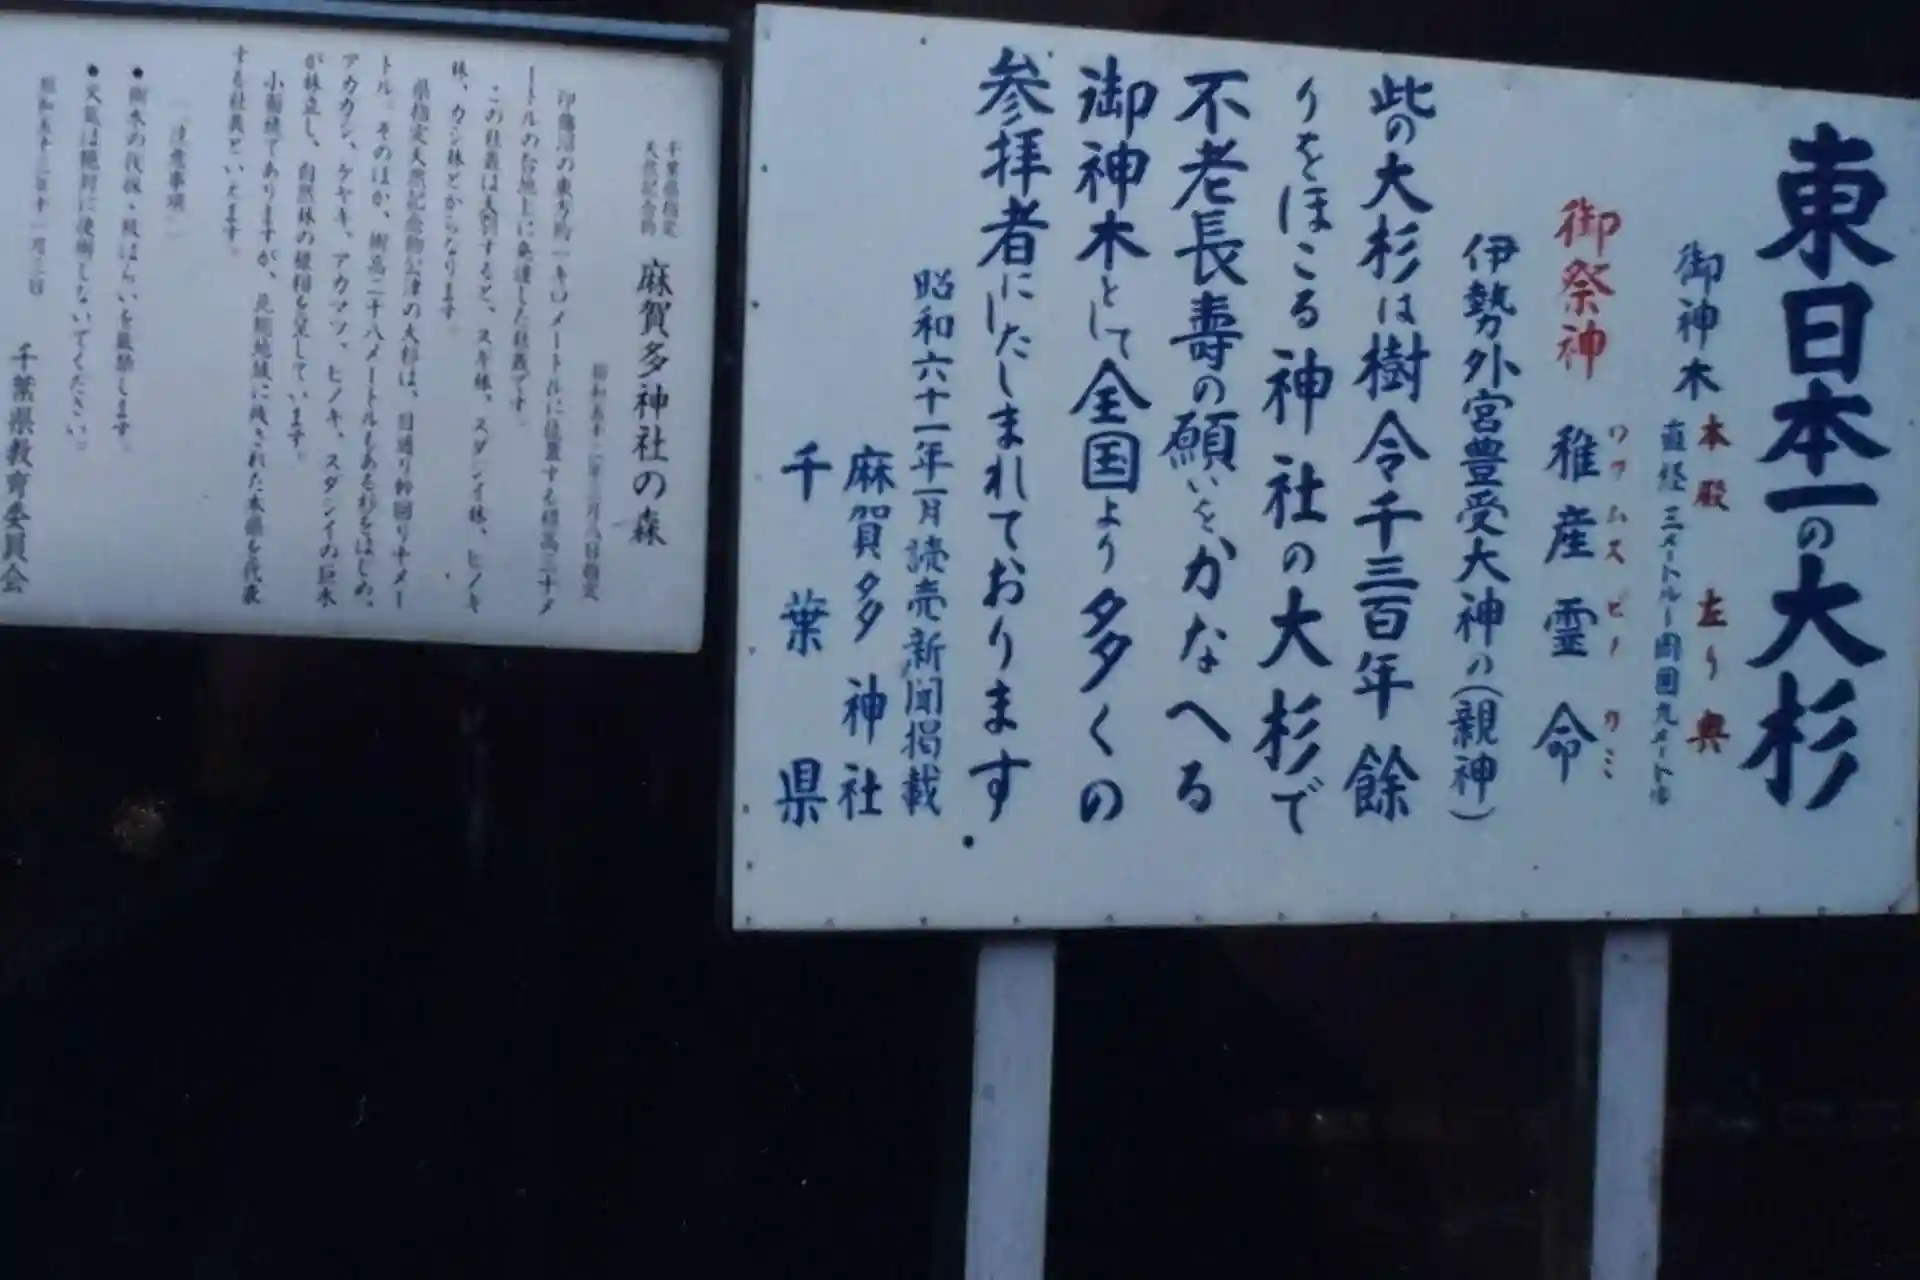 東日本一の大杉
御神木
本殿 左り奥
直経 三メートル 周囲九メートル
御祭神 稚産霊命
ワクムスビノカミ
伊勢外宮豊受大神の(親神)
此の大杉は樹令千三百年餘
りをほこる神社の大杉で
不老長壽の願いをかなへる
御神木として全国より多くの
参拝者にしたしまれております
昭和六十一年一月読売新聞掲載
麻賀多神社
千葉県
千葉県指定
天然記念物
麻賀多神社の森
印旛沼の東方約一キロメートルに位置する標高三十メ
ートルの台地上に発達した社叢です。
この社叢は大別すると、スギ林、スダジイ林、ヒノキ
林、カシ林とからなります。
県指定天然記念物公津の大杉は、目通り幹囲り
トル。そのほか、樹高二十八メートルもある杉をはじめ、
アカガシ、ケヤキ、アカマツ、ヒノキ、スダジイの巨木
が林立し、自然林の様相を呈しています。
小面積でありますが、北総地域に残された本県を代表
する社叢といえます。
(注意事項)
●樹木の伐採・枝はらいを厳禁します。
●火気は絶対に使用しないでください。
千葉県教育委員会